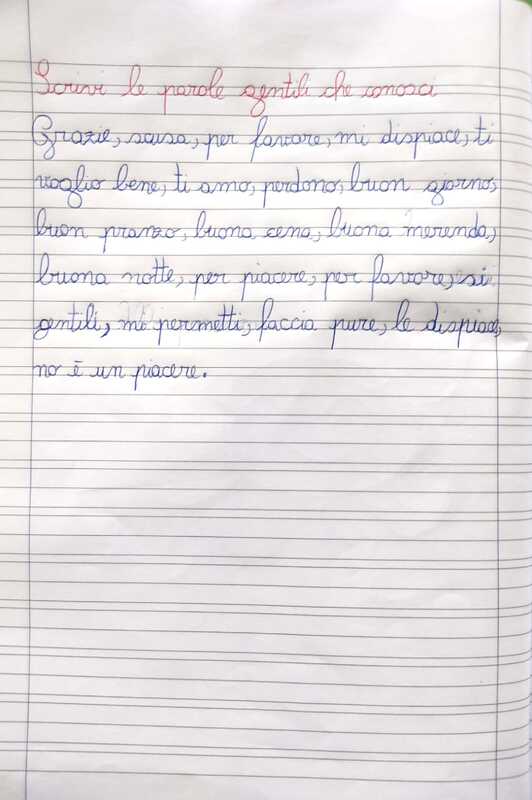 Scrivi le parole gentili che conosci
Grazie, scusa, per favore, mi dispiace, ti
voglio bene, ti amo, perdono, buon giorno,
buon pranzo, buona cena, buona merenda,
buona notte, per piacere, per favore, si
gentili, mi permetti, faccia pure, le dispiace,
no è un piacere.